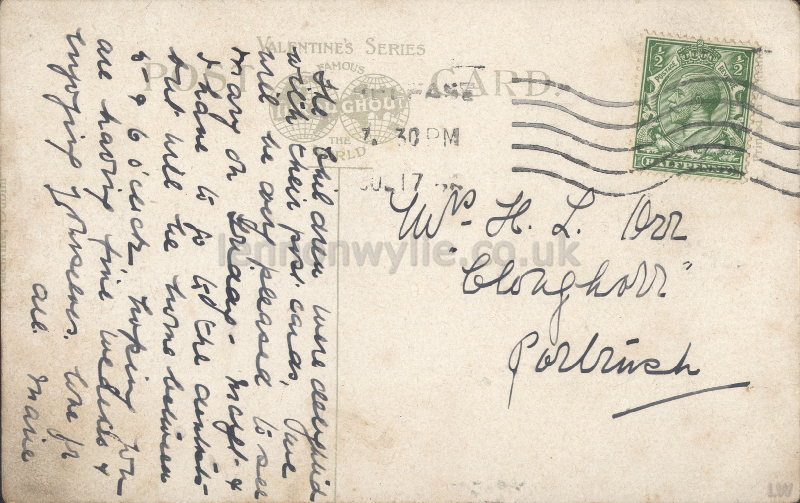 VALENTINE'S SERIES
POST CARD.
FAMOUS
THROUGHOUT
THE
WORLD
7. 30 PM
JUL 17
POSTAGE
½ ½
HALFPENNY
Mrs H. L. Orr
"Cloughorr"
Portrush
The Children were delighted
with their post cards. We
will be very pleased to see
Mary on Friday. Margt &
I have to go to the dentist
but will be home between
5 & 6 o'clock. hoping you
are having fine weather &
enjoying yourselves. Love fr
all. Marie
lennonwylie.co.uk
LW